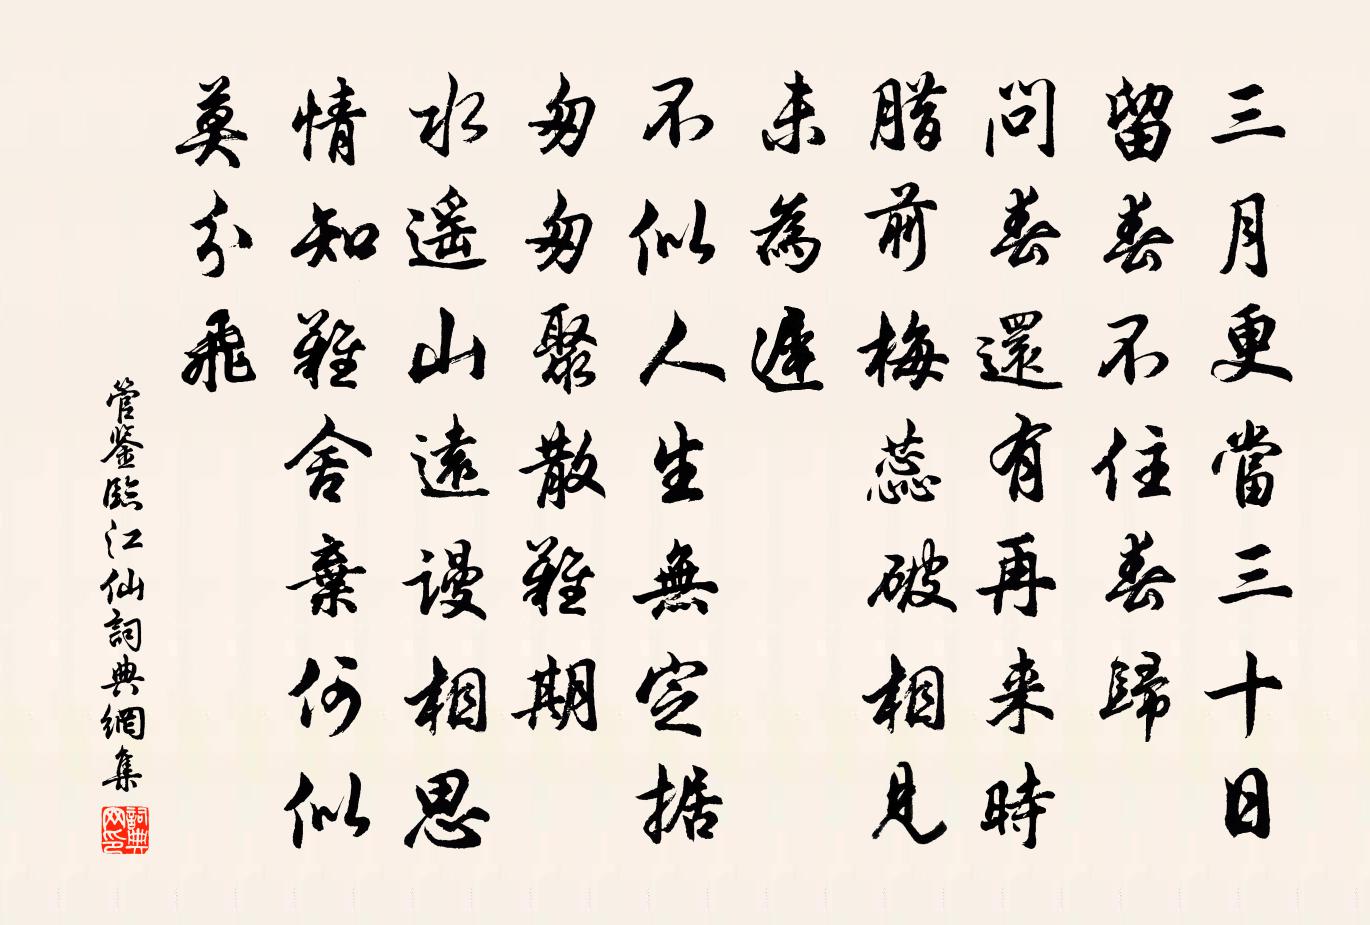 三月更當三十日
留春不住春歸
問春還有再来時
腊前梅蕊破相見
未為遲
不似人生無定据
匆匆聚散難期
水遥山遠謾相思
情知難舍棄何似
莫分飛
管鉴臨江仙詞典網集
詞典
网印